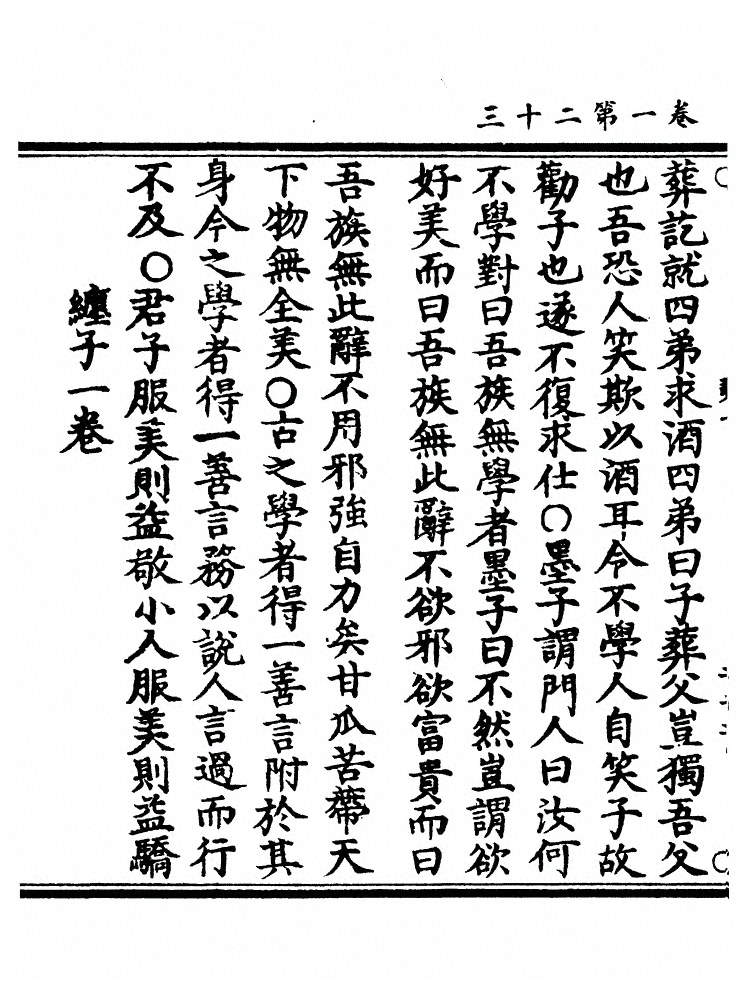 卷一第二十三
葬訖就四弟求酒四弟曰子葬父豈獨吾父
也吾恐人笑欺以酒耳今不學人自笑子故
勸子也遂不復求仕○墨子謂門人曰汝何
不學對曰吾族無學者墨子曰不然豈謂欲
好美而曰吾族無此辭不欲邪欲富貴而曰
吾族無此辭不用邪強自力矣甘瓜苦蔕天
下物無全美○古之學者得一善言附於其
身今之學者得一善言務以說人言過而行
不及○君子服美則益敬小人服美則益驕
纏子一卷